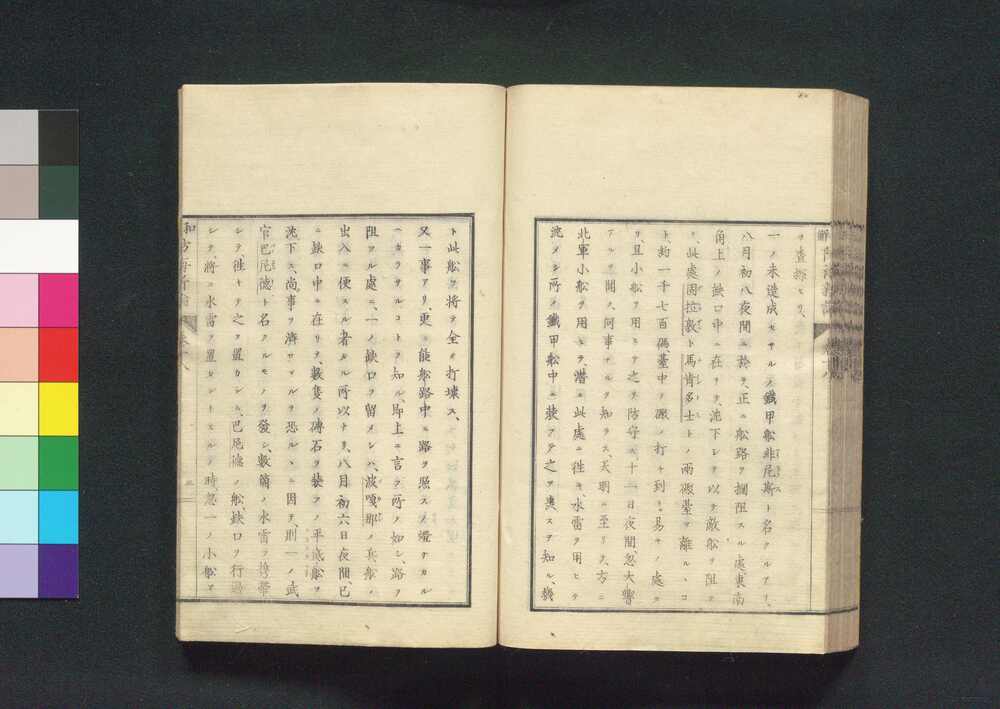 一ノ未造成セサルノ鐵甲船非尼斯ト名クルアリ、
八月初八夜間ニ於テ、正ニ船路ヲ攔阻スル處東南
角上ノ缺口中ニ在リテ、沈下シテ以テ敵船ヲ阻テ
此處因拉敦ト馬肯多士トノ兩礟臺ヲ離ルヽコ
ト、約一千七百碼臺中ノ礟ノ打チ到リ易キノ處ナ
リ、且小船ヲ用ヒテ之ヲ防守ス、十一日夜間、忽大響
アルヲ聞ス、何事ナルヲ知ラス、天明ニ至リテ、方ニ
北軍小船ヲ用ヒテ、潛ニ此處ニ徃キ、水雷ヲ用ヒテ
沈メシ所ノ鐵甲船中ニ裝フテ之ヲ轟スヲ知ル、機
ト此船ヲ將テ全ク打壞ス、
又一事アリ、更ニ能船路中ニ路ヲ照スノ燈ナカル
ヘカラサルコトヲ知ル、即上ニ言フ所ノ如シ、路ヲ
阻ツル處ニ、一ノ缺口ヲ留メシハ、波嗄那ノ兵船ノ
出入ニ便スル者ナル所以ナリ、八月初六日夜間、已
ニ缺口中ニ在リテ、數隻ノ磚石ヲ裝フノ平底船ヲ
沈下ス、尚事ヲ濟サヾルヲ恐ルヽニ因テ、則一ノ武
官巴尼德ト名クルモノヲ發シ、數箇ノ水雷ヲ携帶
シテ、徃キテ之ヲ置カシム、巴尼德ノ船、缺口ヲ行過
シテ、將ニ水雷ヲ置カントスルノ時、忽一ノ小船ア